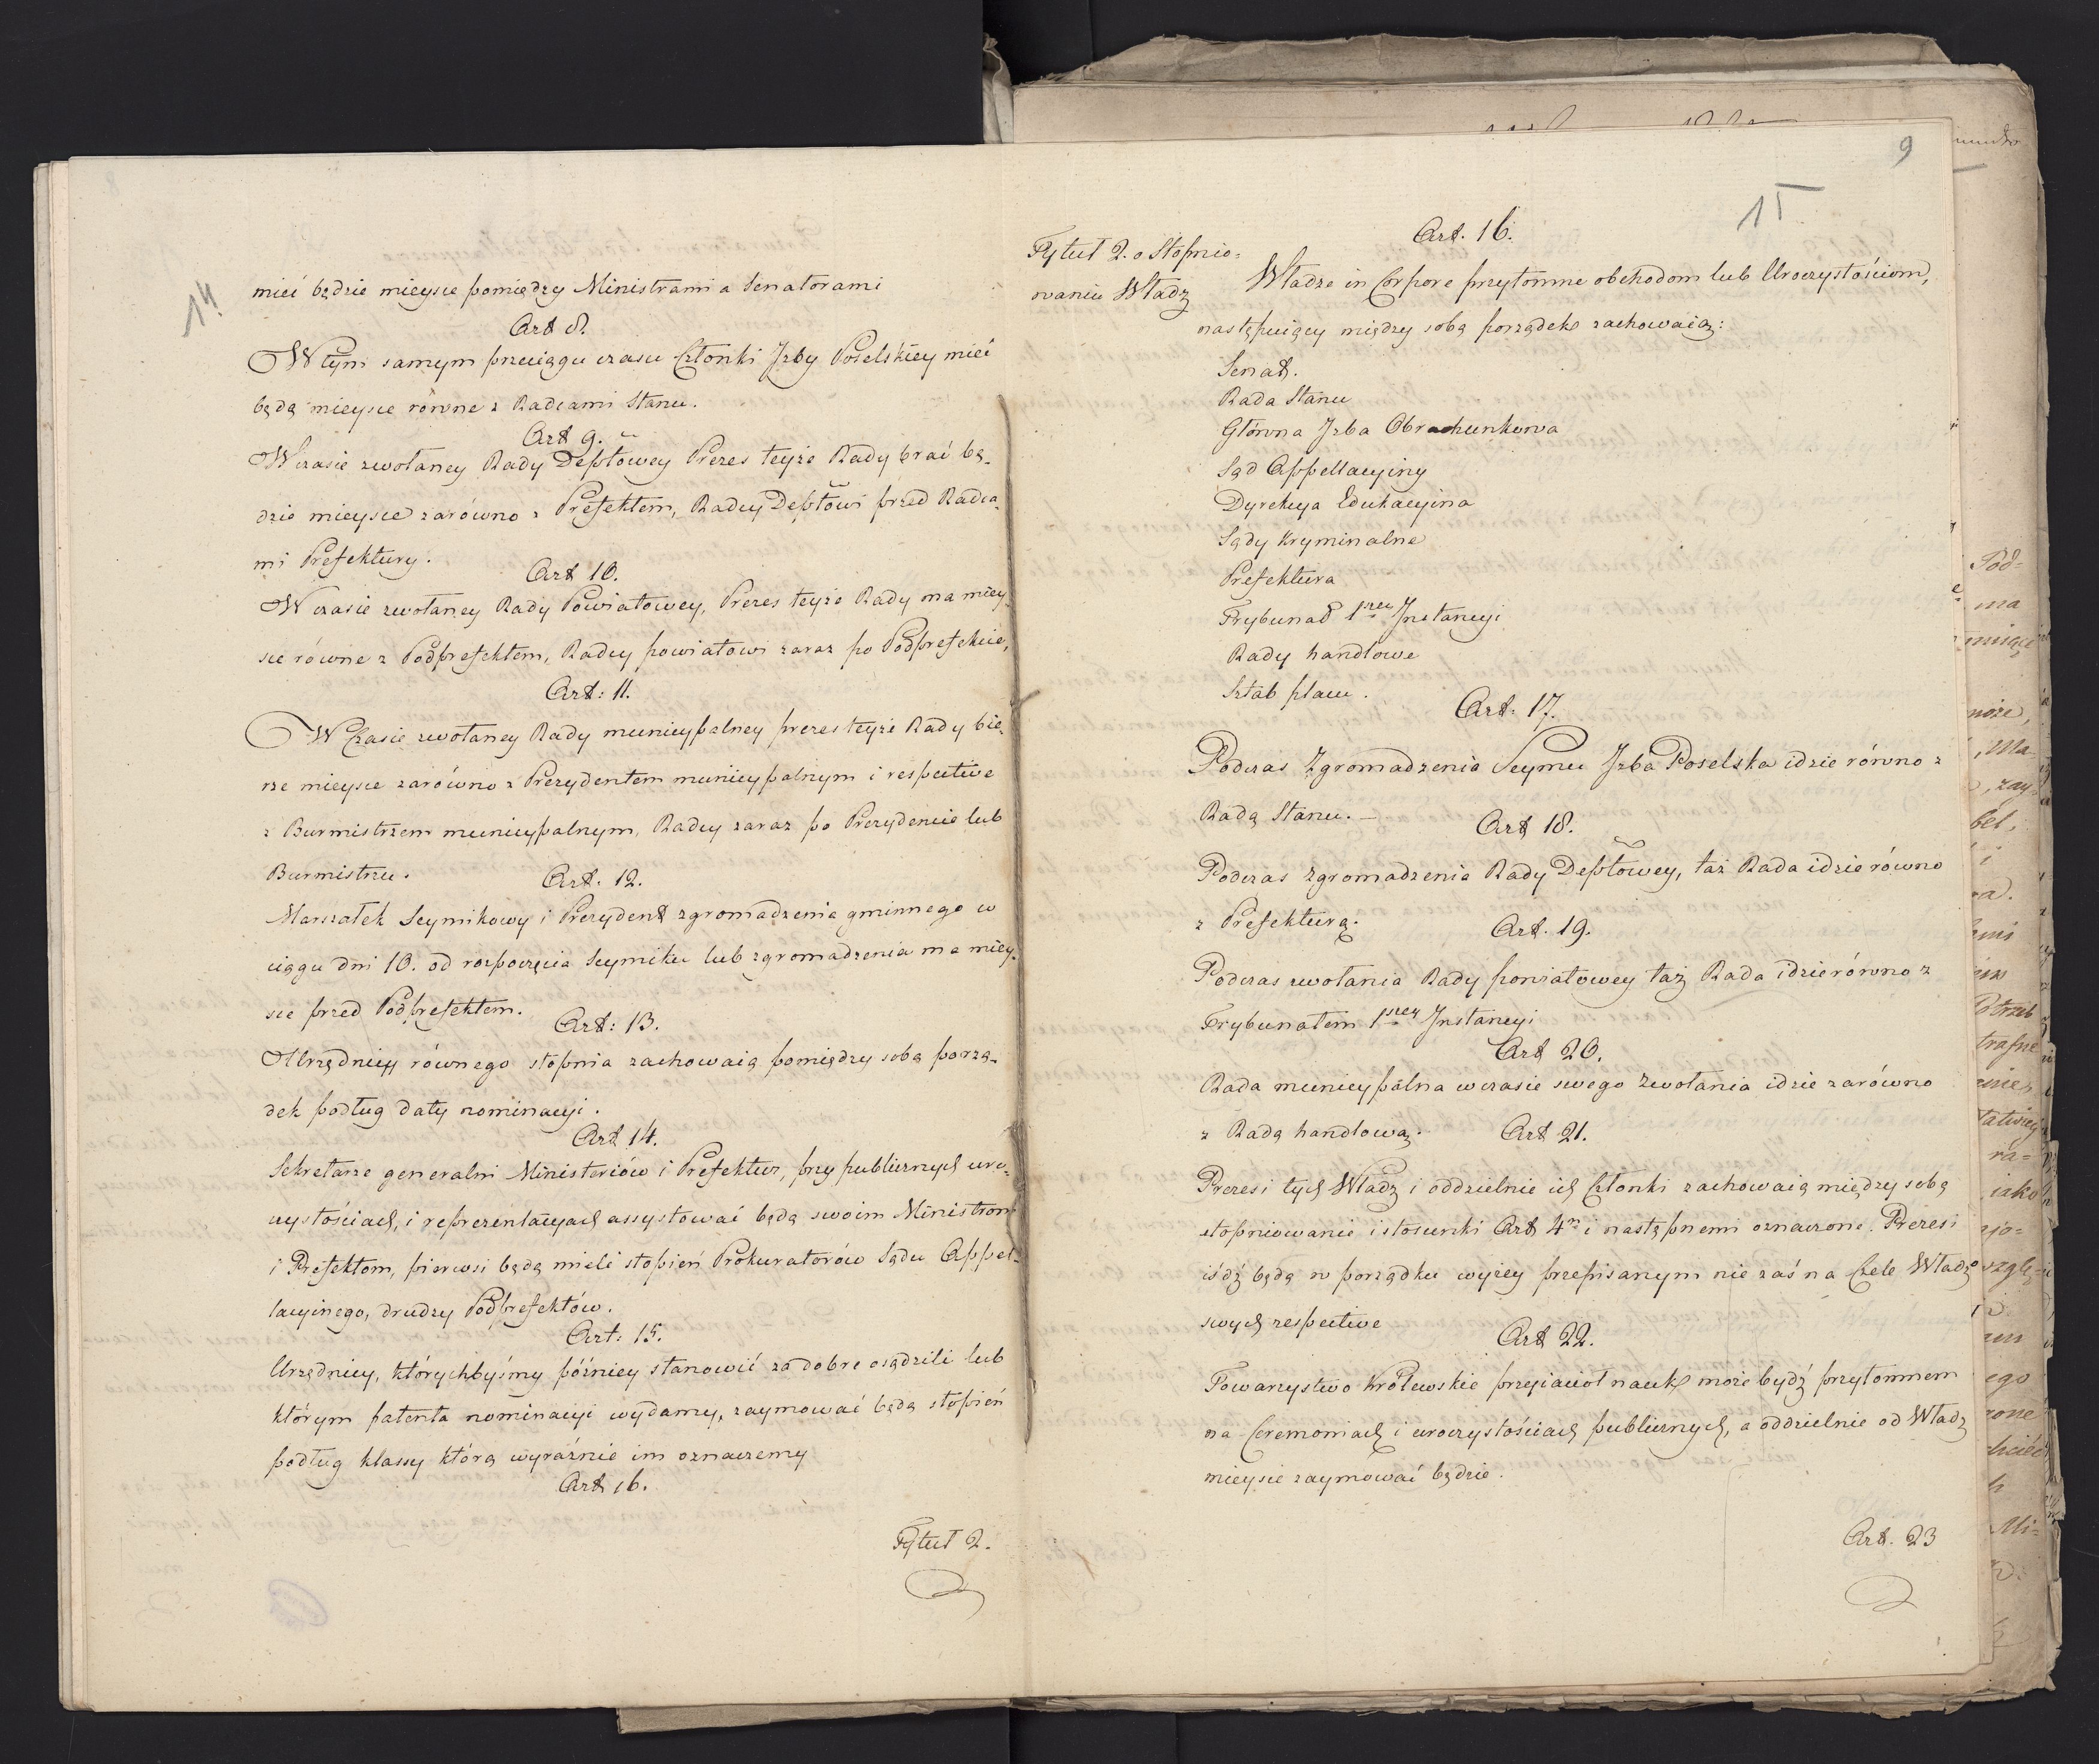 14
mieć będzie mieysce pomiędzy Ministrami a Senatorami
Art 8.
W tym samym przeciągu czasu Członki Izby Poselskiey mieć
będą mieysce równe z Radcami Stanu.
Art 9.
W czasie zwołaney Rady Depłowey Prezes teyże Rady brać bę-
dzie mieysce zarówno z Prefektem, Radcy Depłowi przed Radca-
mi Prefektury.
Art 10.
W czasie zwołaney Rady Powiatowey, Prezes teyże Rady ma miey-
sce równe z Podprefektem, Radcy powiatowi zaraz po Podprefekcie,
Art: 11.
W Czasie zwołaney Rady municypalney prezes teyże Rady bie-
rze mieysce zarówno z Prezydentem municypalnym i respective
z Burmistrzem municypalnym, Radcy zaraz po Prezydencie lub
Burmistrzu.
Art. 12.
Marszałek Seymikowy i Prezydent zgromadzenia gminnego w
ciągu dni 10. od rozpoczęcia Seymiku lub zgromadzenia ma miey-
sce przed Podprefektem.
Art: 13.
Urzędnicy równego stopnia zachowaią pomiędzy sobą porzą-
dek podług daty nominacyi.
Art 14.
Sekretarze generalni Ministeriów i Prefektur, przy publicznych uro-
czystościach, i reprezentacyach assystować będą swoim Ministrom
i Prefektom, pierwsi będą mieli stopień Prokuratorów Sądu Appel-
lacyinego, drudzy Podprefektów.
Art: 15.
Urzędnicy, którychbyśmy późniey stanowić za dobre osądzili lub
którym patenta nominacyi wydamy, zaymować będą stopień
podług klassy którą wyraźnie im oznaczemy
Art 16.
Tytuł 2.
9
15
Tytuł 2. o Stopnio-
waniu Władz
Art. 16.
Władze in Corpore przytomne obchodom lub Uroczystościom,
następuiący między sobą porządek zachowaią:
Senat.
Rada Stanu
Główna Izba Obrachunkowa
Sąd Appellacyiny
Dyrekcya Edukacyina
Sądy Kryminalne
Prefektura
Trybunał 1szey Instancyi
Rady handlowe
Sztab placu.
Art. 17.
Podczas Zgromadzenia Seymu Izba Poselska idzie równo z
Radą Stanu. -
Art 18.
Podczas Zgromadzenia Rady Depłowey, taż Rada idzie równo
z Prefekturą.
Art. 19.
Podczas zwołania Rady powiatowey taż Rada idzie równo z
Trybunałem 1szey Instancyi
Art 20.
Rada municypalna w czasie swego zwołania idzie zarówno
z Radą handlową.
Art 21.
Prezesi tych Władz i oddzielnie ich Członki zachowaią między sobą
stopniowanie i stosunki Art 4m i następnemi oznaczone. Prezesi
iśdź będą w porządku wyżey przepisanym nie zaś na Czele Władz
swych respective
Art 22.
Towarzystwo Królewskie przyiaciół nauk może bydź przytomnem
na Ceremoniach i uroczystościach publicznych, a oddzielnie od Władz
mieysce zaymować będzie.
Art. 23